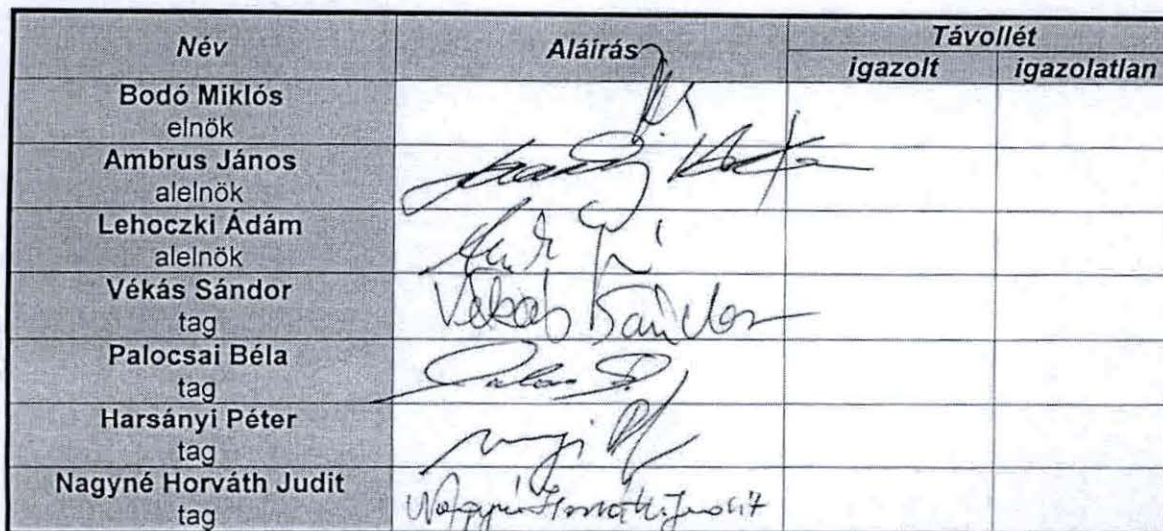 Név Aláírás Távollét
igazolt igazolatlan
Bodó Miklós
elnök
Ambrus János
alelnök
Lehoczki Ádám
alelnök
Vékás Sándor Vékás Sándor
tag
Palocsai Béla
tag
Harsányi Péter
tag
Nagyné Horváth Judit Nagyné Horváth Judit
tag